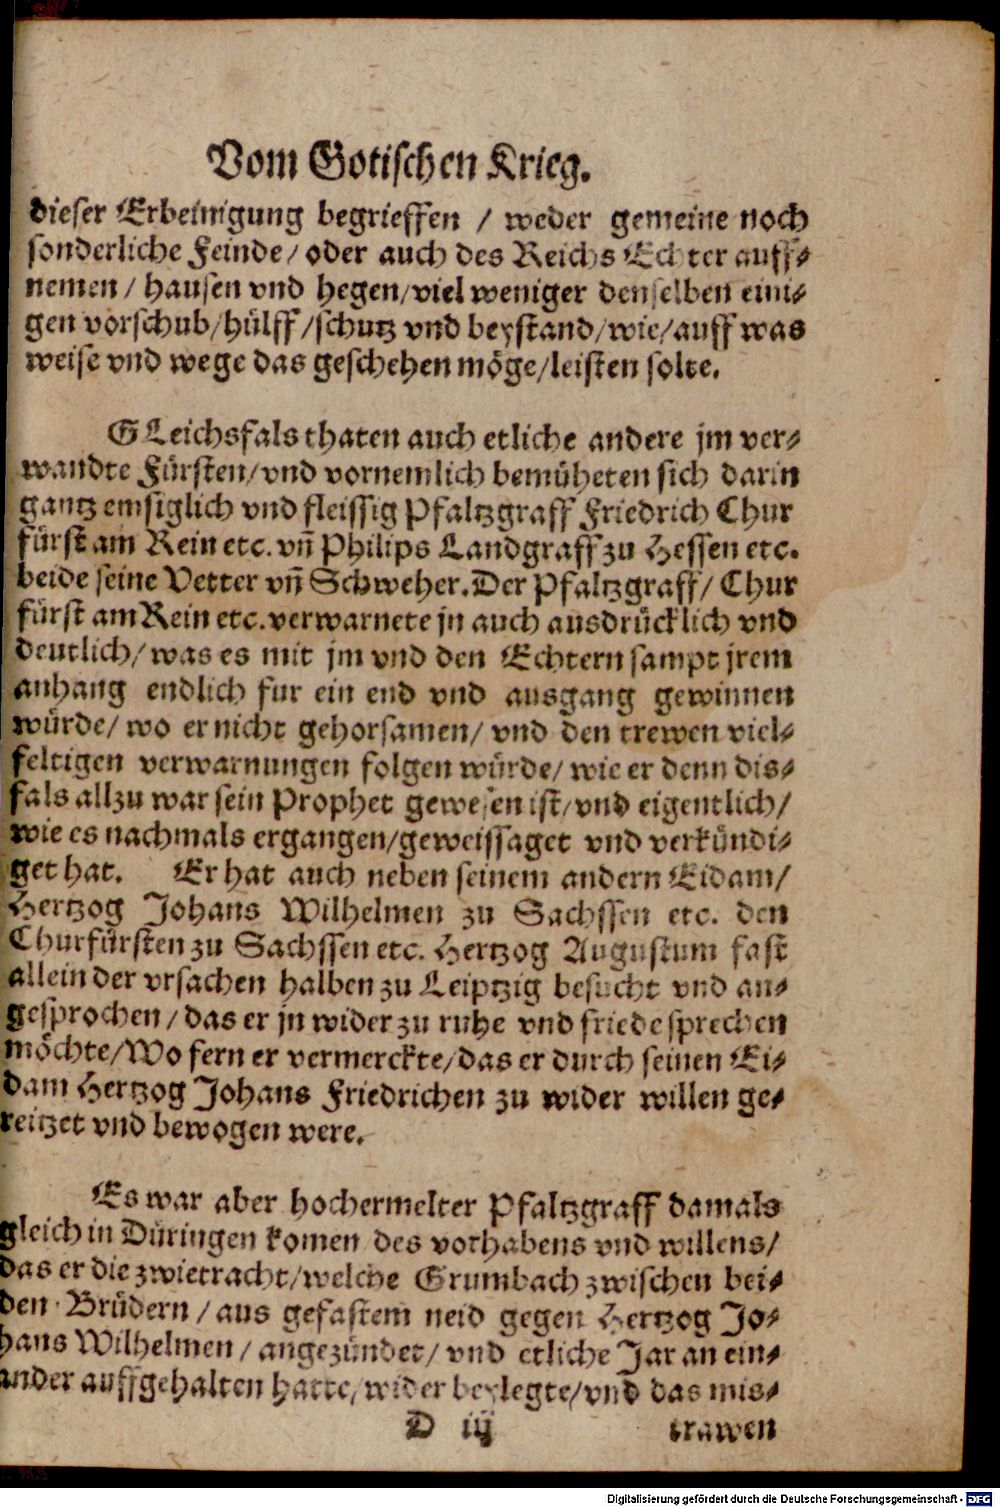 Vom Gotischen Krieg.
dieser Erbeinigung begrieffen / weder gemeine noch
sonderliche Feinde / oder auch des Reichs Echter auff⸗
nemen / hausen vnd hegen / viel weniger denselben eini⸗
gen vorschub / hülff / schutz vnd beystand / wie / auff was
weise vnd wege das geschehen möge / leisten solte.
GLeichsfals thaten auch etliche andere jm ver⸗
wandte Fürsten / vnd vornemlich bemüheten sich darin
gantz emsiglich vnd fleissig Pfaltzgraff Friedrich Chur
fürst am Rein etc. vn̄ Philips Landgraff zu Hessen etc.
beide seine Vetter vn̄ Schweher. Der Pfaltzgraff / Chur
fürst am Rein etc. verwarnete jn auch ausdrücklich vnd
deutlich / was es mit jm vnd den Echtern sampt jrem
anhang endlich fur ein end vnd ausgang gewinnen
würde / wo er nicht gehorsamen / vnd den trewen viel⸗
feltigen verwarnungen folgen würde / wie er denn dis⸗
fals allzu war sein Prophet gewesen ist / vnd eigentlich /
wie es nachmals ergangen / geweissaget vnd verkündi⸗
get hat. Er hat auch neben seinem andern Eidam /
Hertzog Johans Wilhelmen zu Sachssen etc. den
Churfürsten zu Sachssen etc. Hertzog Augustum fast
allein der vrsachen halben zu Leiptzig besucht vnd an⸗
gesprochen / das er jn wider zu ruhe vnd friede sprechen
möchte / Wo fern er vermerckte / das er durch seinen Ei⸗
dam Hertzog Johans Friedrichen zu wider willen ge⸗
reitzet vnd bewogen were.
Es war aber hochermelter Pfaltzgraff damals
gleich in Düringen komen des vorhabens vnd willens /
das er die zwietracht / welche Grumbach zwischen bei⸗
den Brüdern / aus gefastem neid gegen Hertzog Jo⸗
hans Wilhelmen / angezündet / vnd etliche Jar an ein⸗
ander auffgehalten hatte / wider beylegte / vnd das mis⸗
D iij trawen
Digitalisierung gefördert durch die Deutsche Forschungsgemeinschaft - DFG